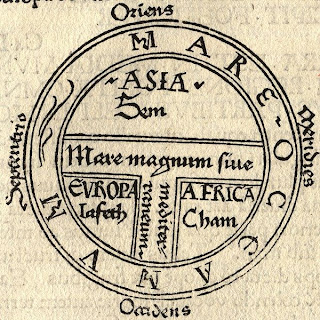 Oriens
MARE OCCEANVM
Septentrio
Meridies
·ASIA
Sem
Mare magnum siue
mediterraneum
EVROPA
Iafeth
AFRICA
Cham
Occidens